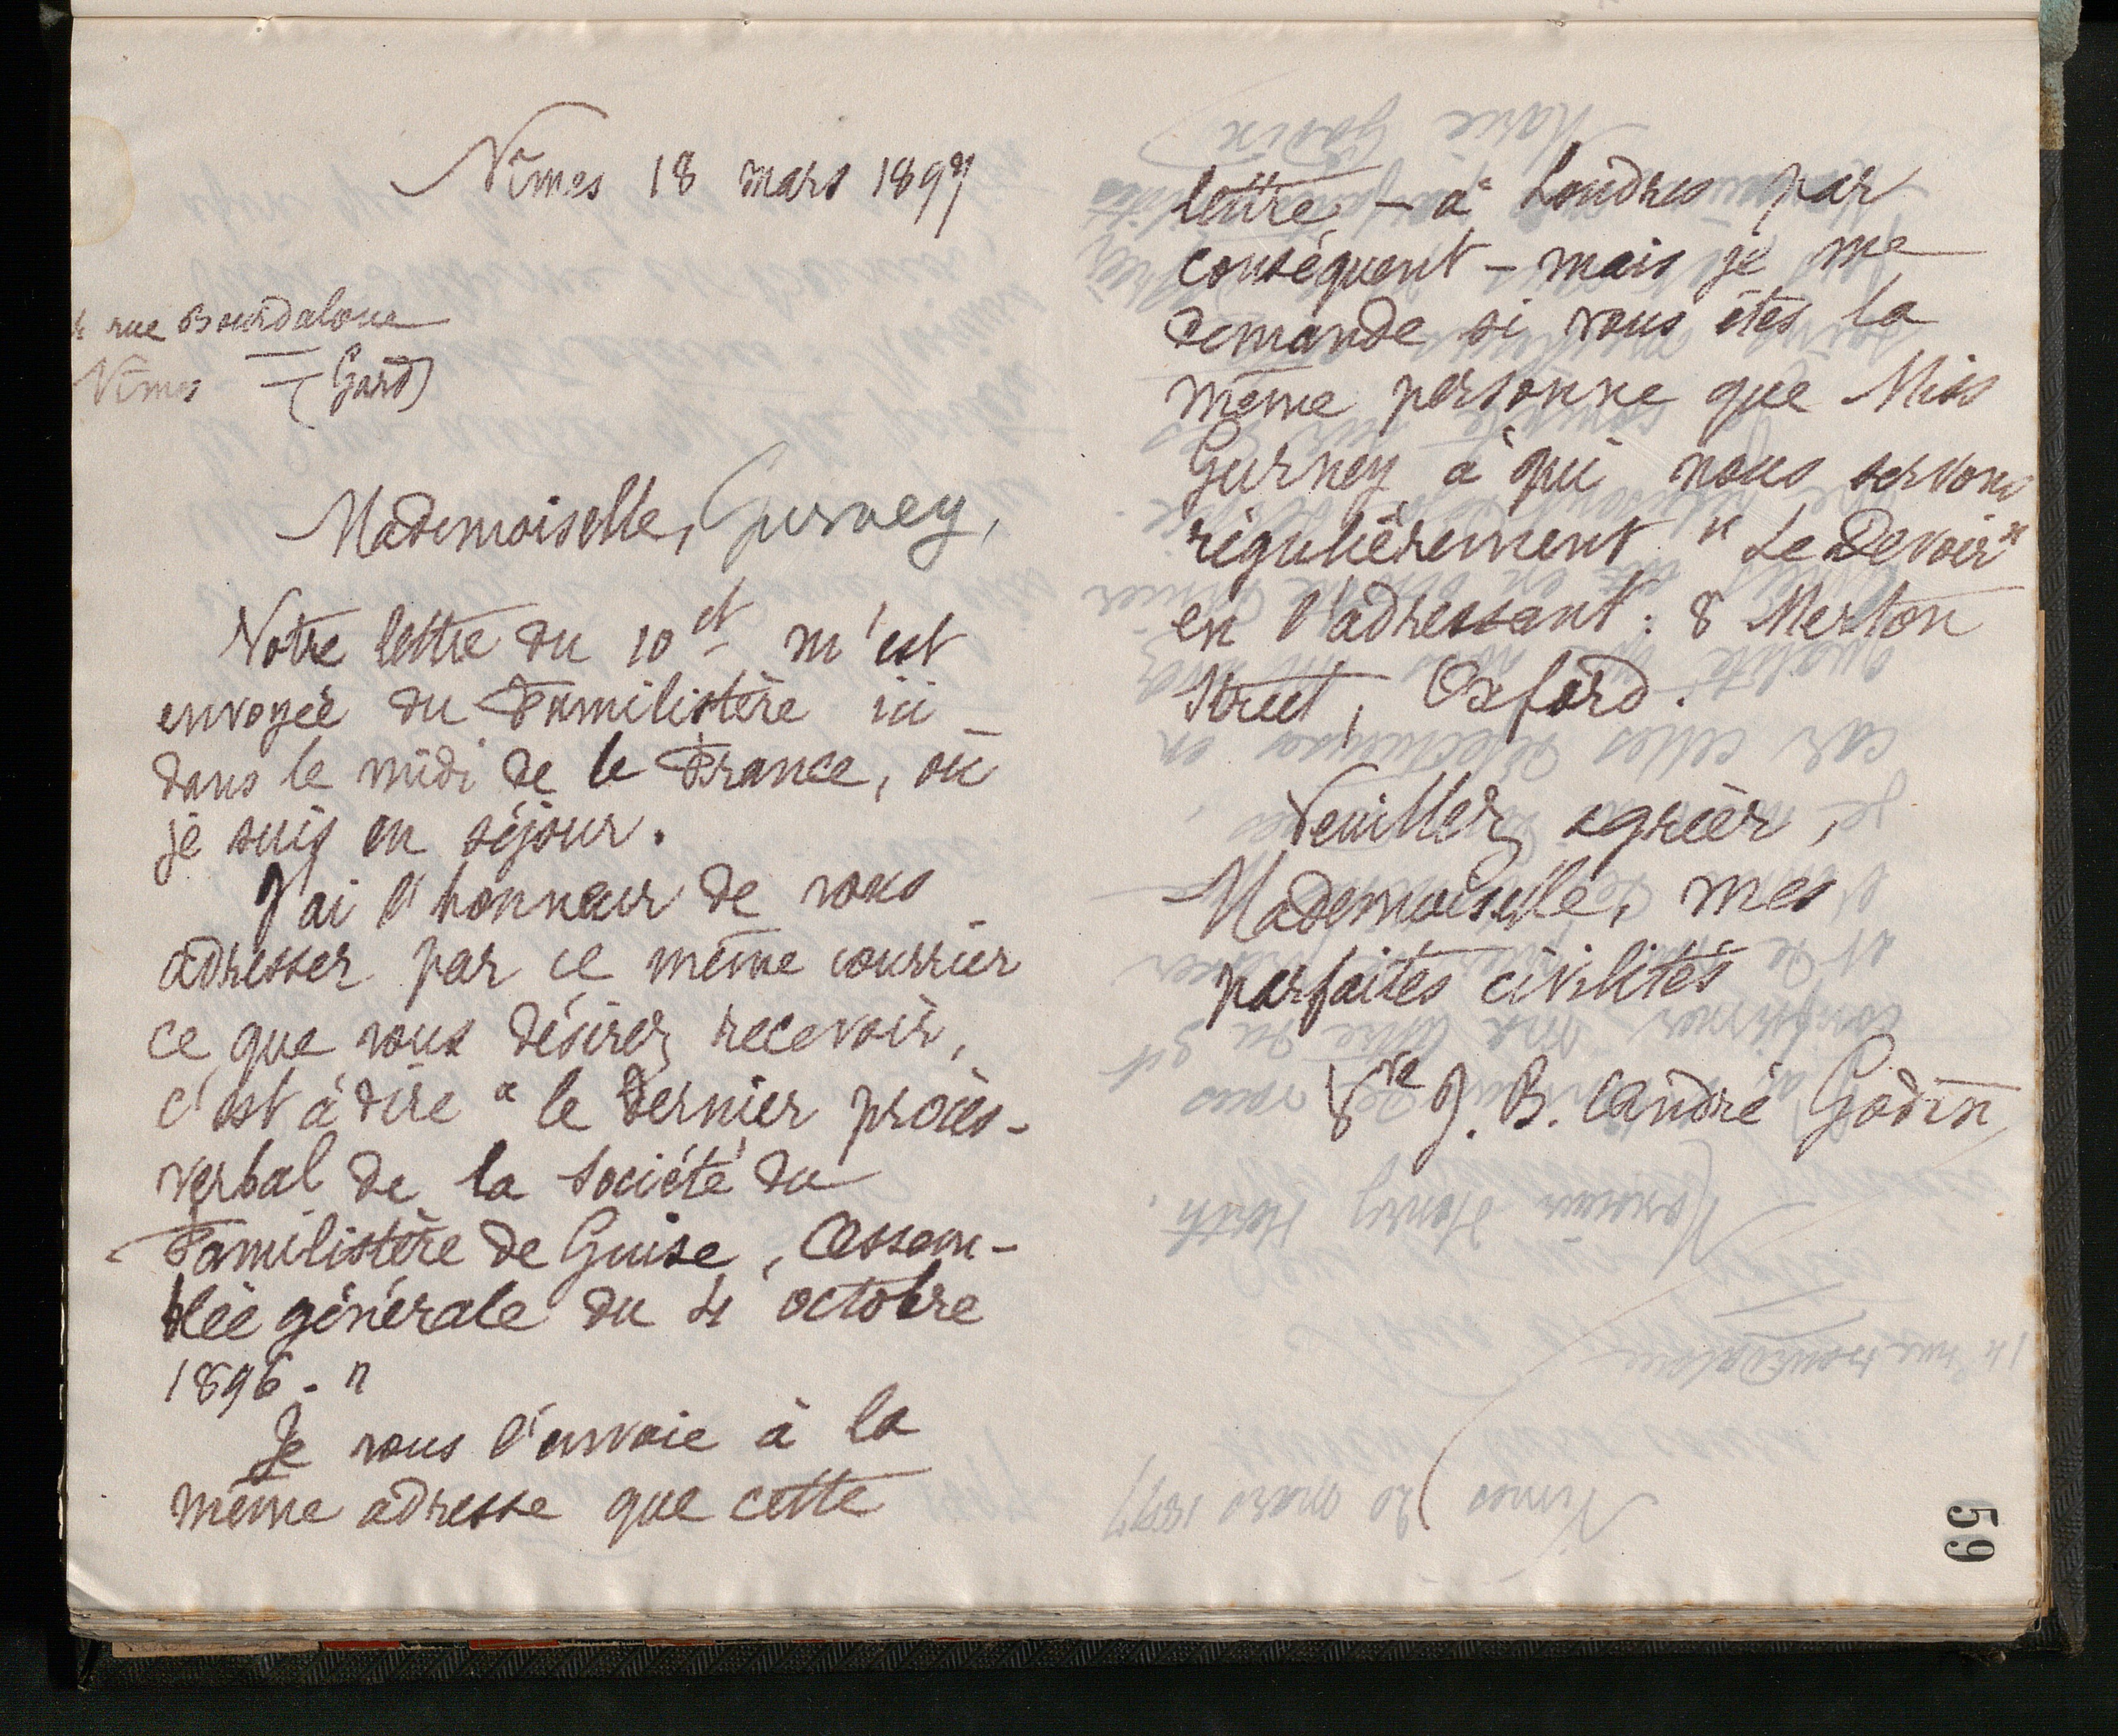 Nîmes 18 mars 1897
4 rue Bourdaloue
Nîmes (Gard)
Mademoiselle, Gurney,
Votre lettre du 10 ct m'est
envoyée du Familistère ici
dans le midi de la France, où
je suis en séjour.
J'ai l'honneur de vous
adresser par ce même courrier
ce que vous désirez recevoir,
c'est à dire " le dernier procès-
verbal de la Société du
Familistère de Guise, Assem-
blée générale du 4 octobre
1896. "
Je vous l'envoie à la
même adresse que cette
lettre - à Londres par
conséquent - mais je me
demande si vous êtes la
même personne que Miss
Gurney à qui nous servons
régulièrement " Le Devoir "
en l'adressant : 8 Merton
Street, Oxford.
Veuillez agréer,
Mademoiselle, mes
parfaites civilités
Vve J. B. André Godin
59